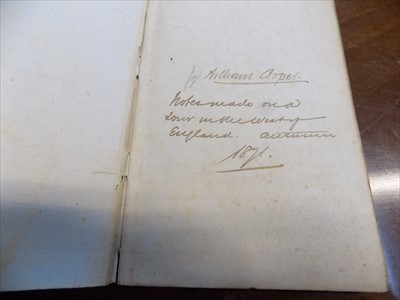 William Cooper.
Notes made on a
tour in the West of
England. autumn
1871.